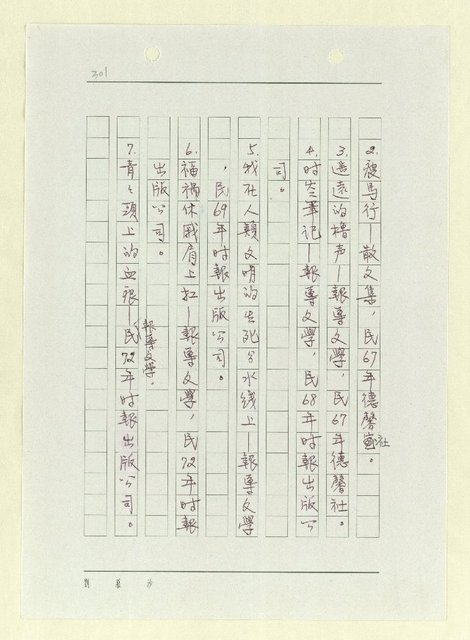 301
2.瘦馬行—散文集，民67年德馨社。
3.遙遠的櫓声—報導文學，民67年德馨社。
4.时岑筆记—報導文學，民68年时報出版公
司。
5.我在人類文明的生死分水线上—報導文學
，民69年时報出版公司。
6.福禍休戚肩上扛—報導文學，民72年时報
出版公司。
7.青々頭上的血狠—報導文學，民72年时報出版公司。
劉慕沙